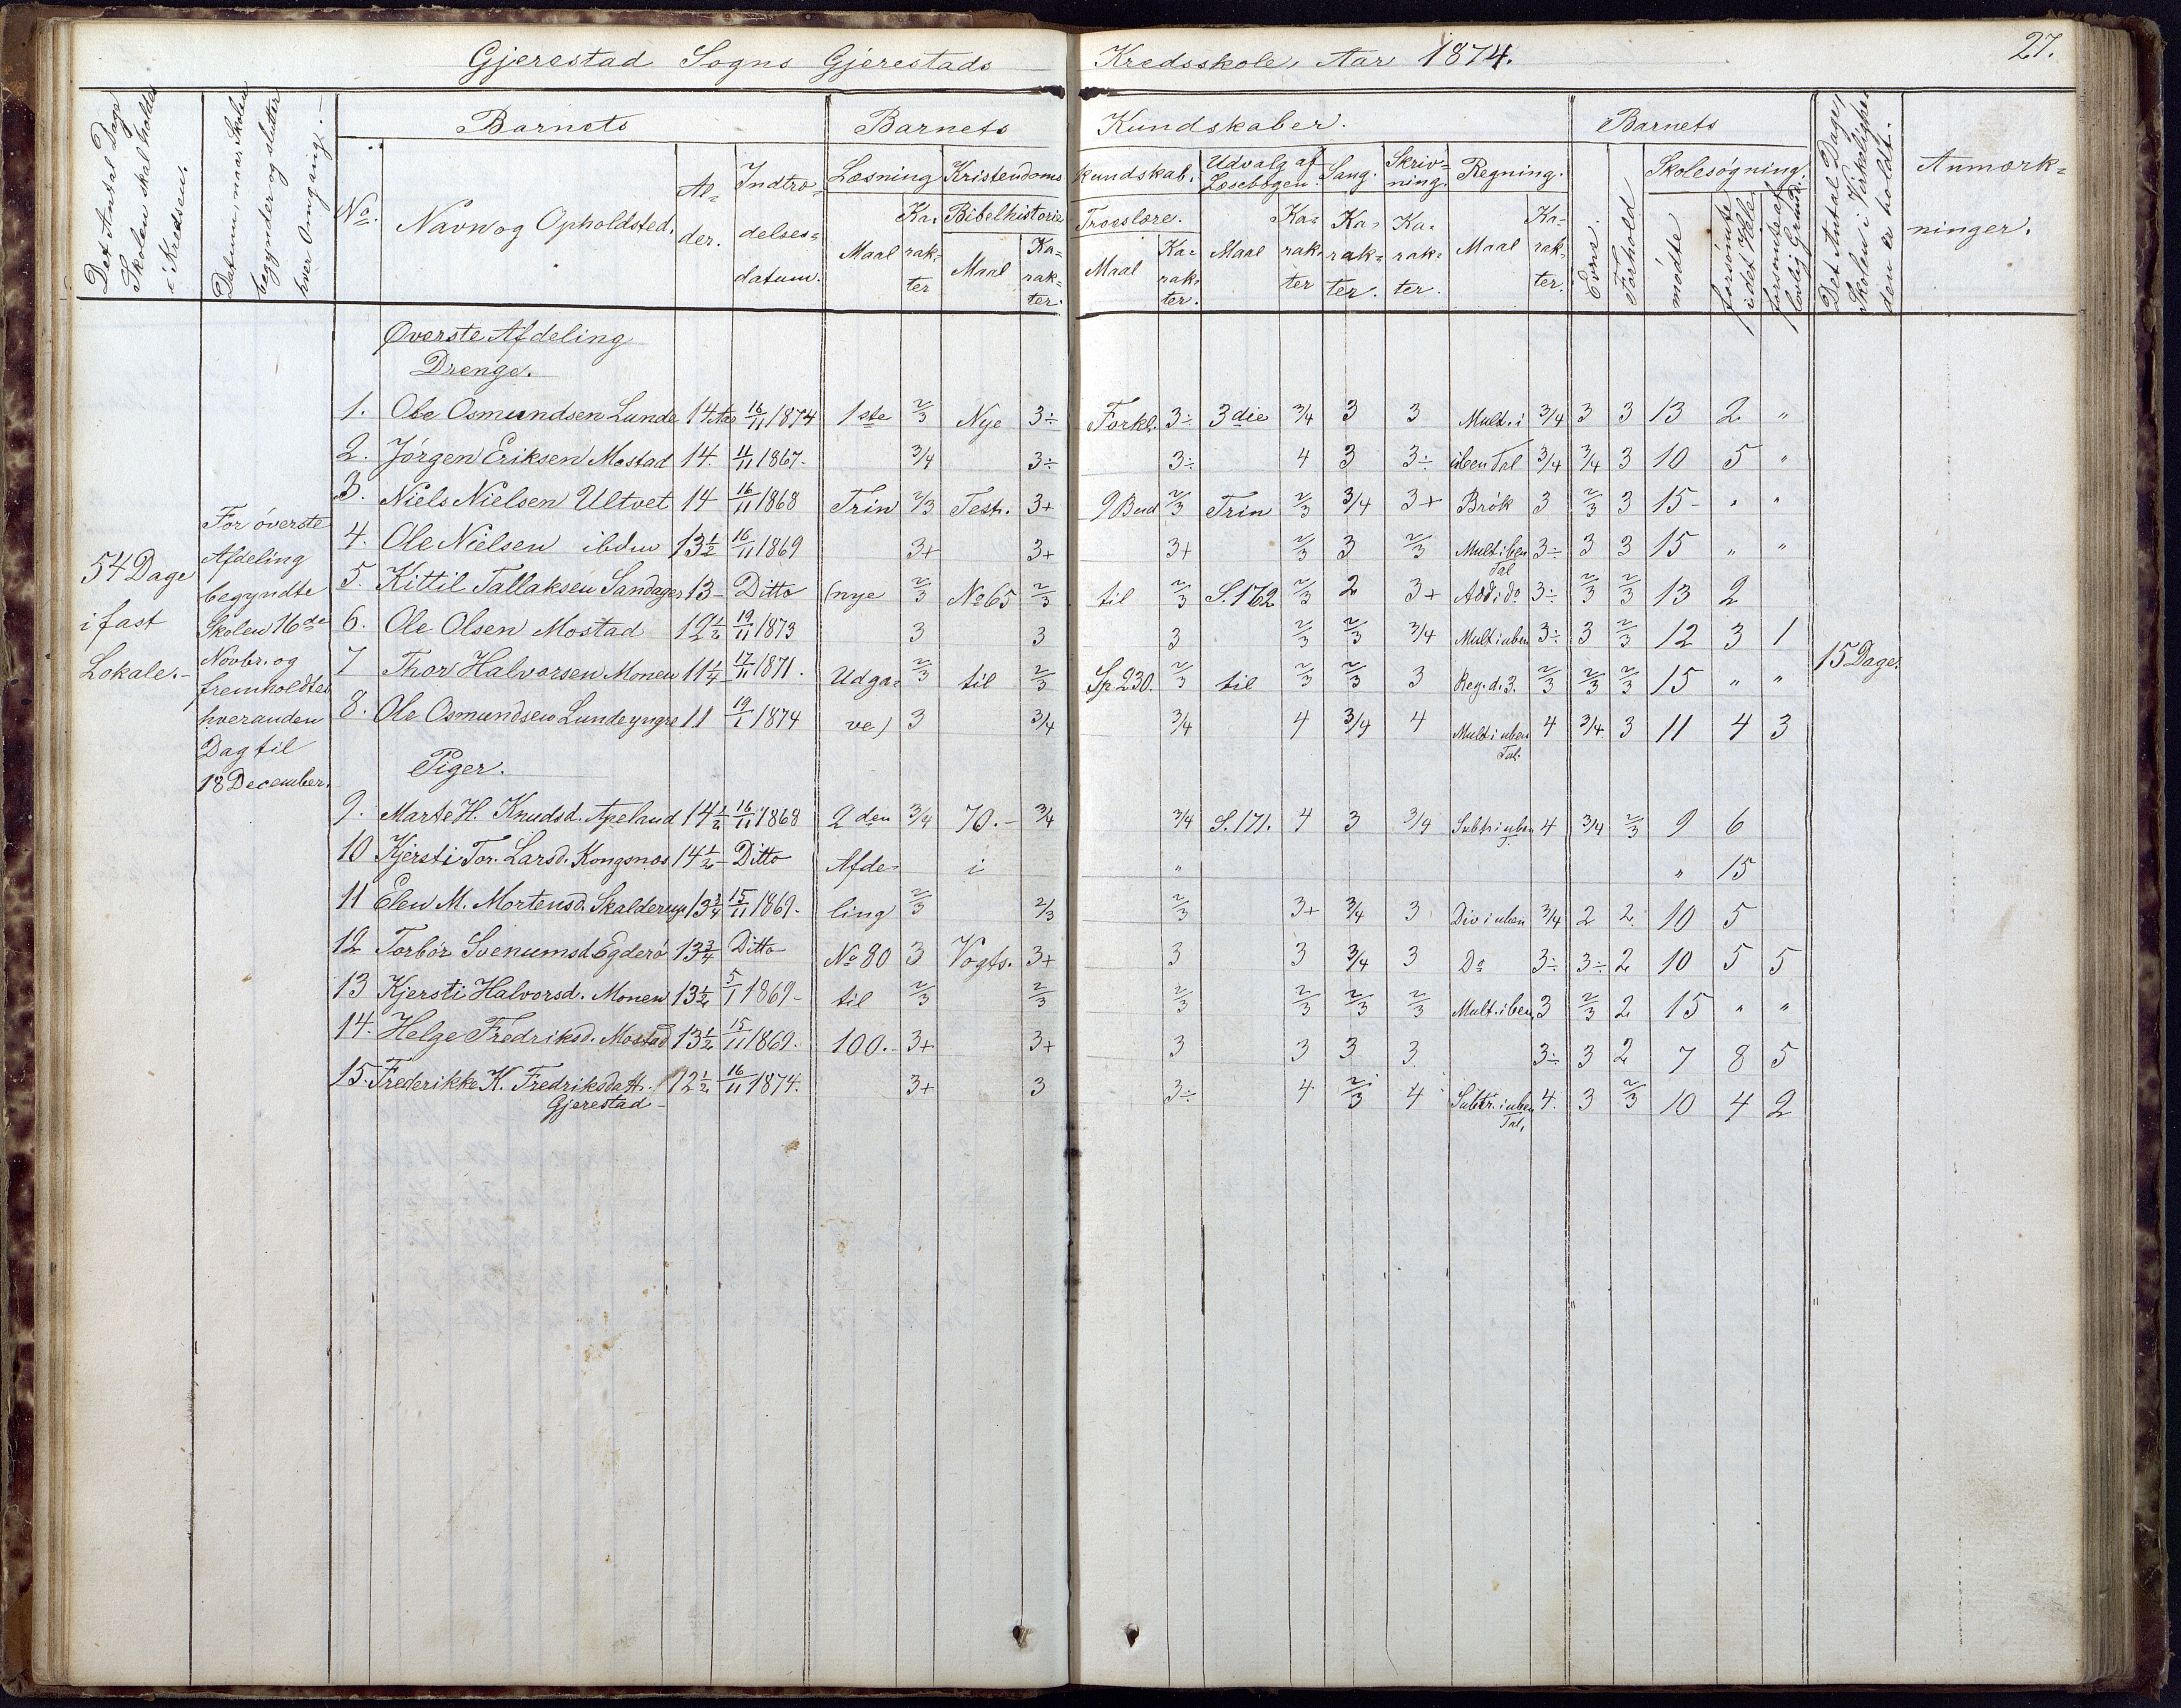 Gjerestad Sogns Gjerestads Kredsskole, Aar 1874. 27.
Det Antal Dage Skolen skal holdes i Kredsen.
Datum, naar Skolen begynder og slutter hver Omgang.
Barnets
Barnets Kundskaber.
Barnets
Det Antal Dage, Skolen i Virkeligheden er holdt.
Anmærkninger.
No. Navn og Opholdsted. Alder. Indtrædelsesdatum.
Læsning Kristendomskundskab. Udvalg af Læsebogen. Sang. Skrivning. Regning. Evne. Forhold Skolesøgning.
Bibelhistorie Troeslære.
Maal Karakter Maal Karakter. Maal Karakter. Maal Karakter Karakter. Karakter. Maal Karakter. mødte forsømte i det Hele forsømte af lovlig Grund.
54 Dage i fast Lokale.-
For øverste Afdeling begyndte Skolen 16de Novbr. og fremholdtes hveranden Dag til 18 December.
Øverste Afdeling
Drenge.
1. Ole Osmundsen Lunde 14 Aar 16/11 1874 1ste 2/3 Nye 3÷ Forkl. 3÷ 3die 3/4 3 3 Mult. i 3/4 3 3 13 2 "
2. Jørgen Eriksen Mostad 14. 11/11 1867- 3/4 3÷ 3÷ 4 3 3÷ iben Tal 3/4 3/4 3 10 5 "
3. Niels Nielsen Ultvet 14 16/11 1868 Trin 2/3 Test. 3+ 9 Bud 2/3 Trin 2/3 3/4 3+ Brøk 3 2/3 3 15- " "
4. Ole Nielsen ibdm 13 1/2 16/11 1869 3+ 3+ 3+ 2/3 3 2/3 Mult iben Tal 3÷ 3 3 15 " "
5. Kittil Tallaksen Sandager 13- Ditto (nye 2/3 No 65 2/3 til 2/3 S. 162 2/3 2 3+ Add i do 3÷ 2/3 2/3 13 2
6. Ole Olsen Mostad 12 1/2 19/11 1873 3 3 3 2/3 2/3 3/4 Mult i uben 3÷ 3 2/3 12 3 1
7 Thor Halvorsen Monen 11 1/4 17/11 1871. Udga= 2/3 til 2/3 Sp. 230. 2/3 til 2/3 2/3 3 Reg. d. 3. 2/3 2/3 2/3 15 " " 15 Dage.
8. Ole Osmundsen Lunde yngre 11 19/1 1874 ve) 3 3/4 3/4 4 3/4 4 Mult i uben Tal. 4 3/4 3 11 4 3
Piger.
9. Marte H. Knudsd. Apeland 14 1/2 16/11 1868 2den 3/4 70.- 3/4 3/4 S. 171. 4 3 3/4 Subtr i uben T. 4 3/4 2/3 9 6
10 Kjersti Tor. Larsd. Kongsnæs 14 1/2- Ditto Afde- i " " 15
11 Elen M. Mortensd. Skalderup 13 3/4 15/11 1869- ling 2/3 2/3 2/3 3+ 3/4 3 Div i uben 3/4 2 2. 10 5
12 Torbor Svenumsd Egderø 13 3/4 Ditto No 80 3 Vogts. 3+ 3 3 3/4 3 Do 3÷ 3÷ 2 10 5 5
13 Kjersti Halvorsd. Monen 13 1/2 5/1 1869- til 2/3 2/3 2/3 2/3 2/3 2/3 Mult. iben 3 2/3 2 15 " "
14. Helge Fredriksd. Mostad 13 1/2 15/11 1869. 100.- 3+ 3+ 3 3 3 3 3÷ 3 2 7 8 5
15. Frederikke K. Fredriksdatt. 12 1/2 16/11 1874. 3+ 3 3÷ 4 2/3 4 Subtr. i uben Tal. 4. 3 2/3 10 4 2
Gjerestad-